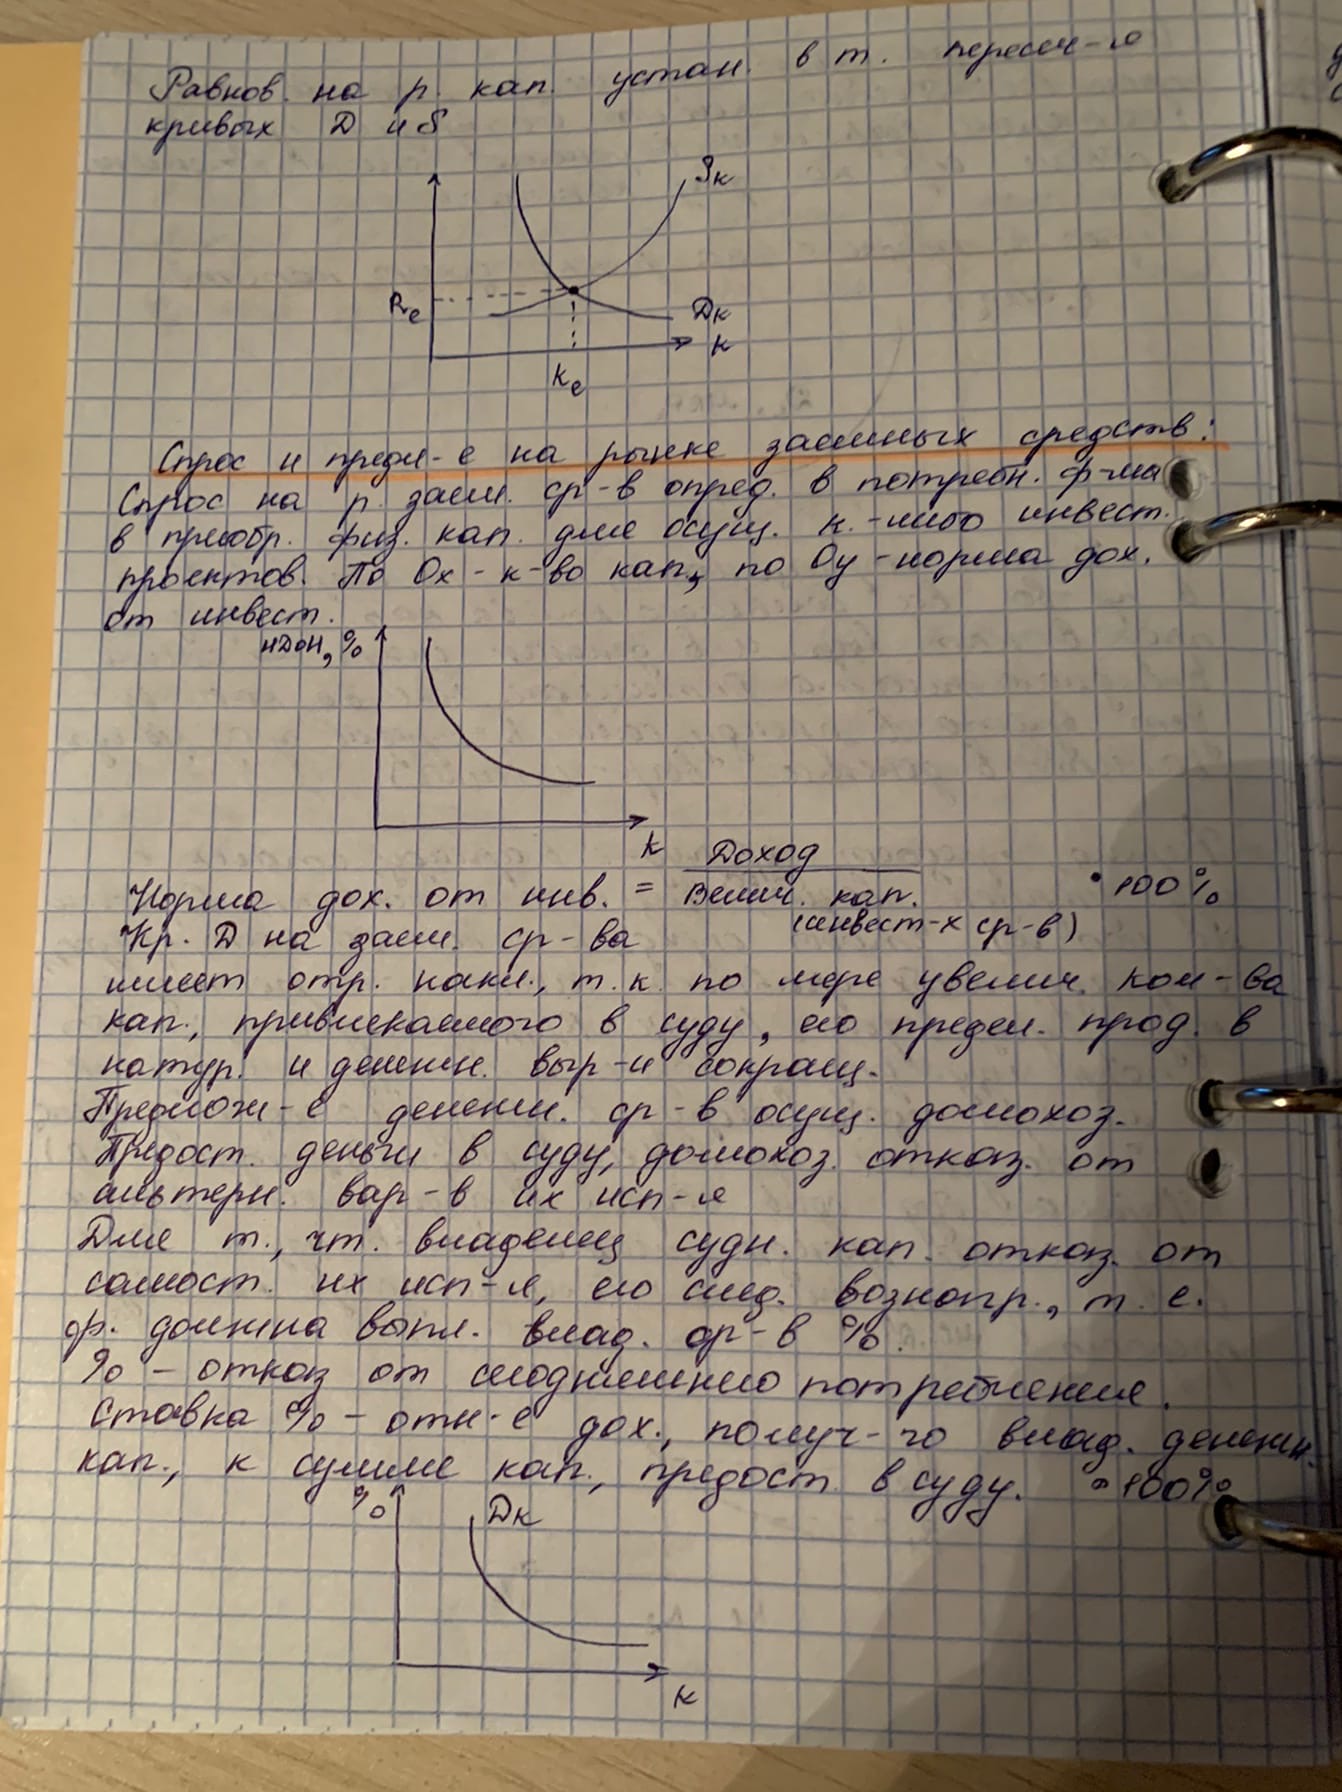 Равнов. на р. кап. устан. в т. пересеч-я
кривых D и S
Sк
Re
Dк
K
Ke
Спрос и предл-е на рынке заемных средств:
Спрос на р. заем. ср-в опред. в потребн. ф-ма
в приобр. физ. кап. для осущ. к.-либо инвест.
проектов. По Ox - к-во кап., по Oy - норма дох.
от инвест.
НДОН, %
K
Норма дох. от инв. = Доход / Велич. кап. • 100%
(инвест-х ср-в)
Кр. D на заем. ср-ва
имеет отр. накл., т.к. по мере увелич. кол-ва
кап., привлекаемого в суду, его предел. прод. в
натур. и денежн. выр-и сокращ.
Предлож-е денежн. ср-в осущ. домохоз.
Предост. деньги в суду, домохоз. отказ. от
альтерн. вар-в их исп-я
Для т., чт. владелец судн. кап. отказ. от
самост. их исп-я, его след. вознагр., т.е.
ф. должна выпл. влад. ср-в %.
% - отказ от сегодняшнего потребления.
Ставка % - отн-е дох., получ-го влад. денежн.
кап., к сумме кап., предост. в суду. • 100%
%
Dк
K